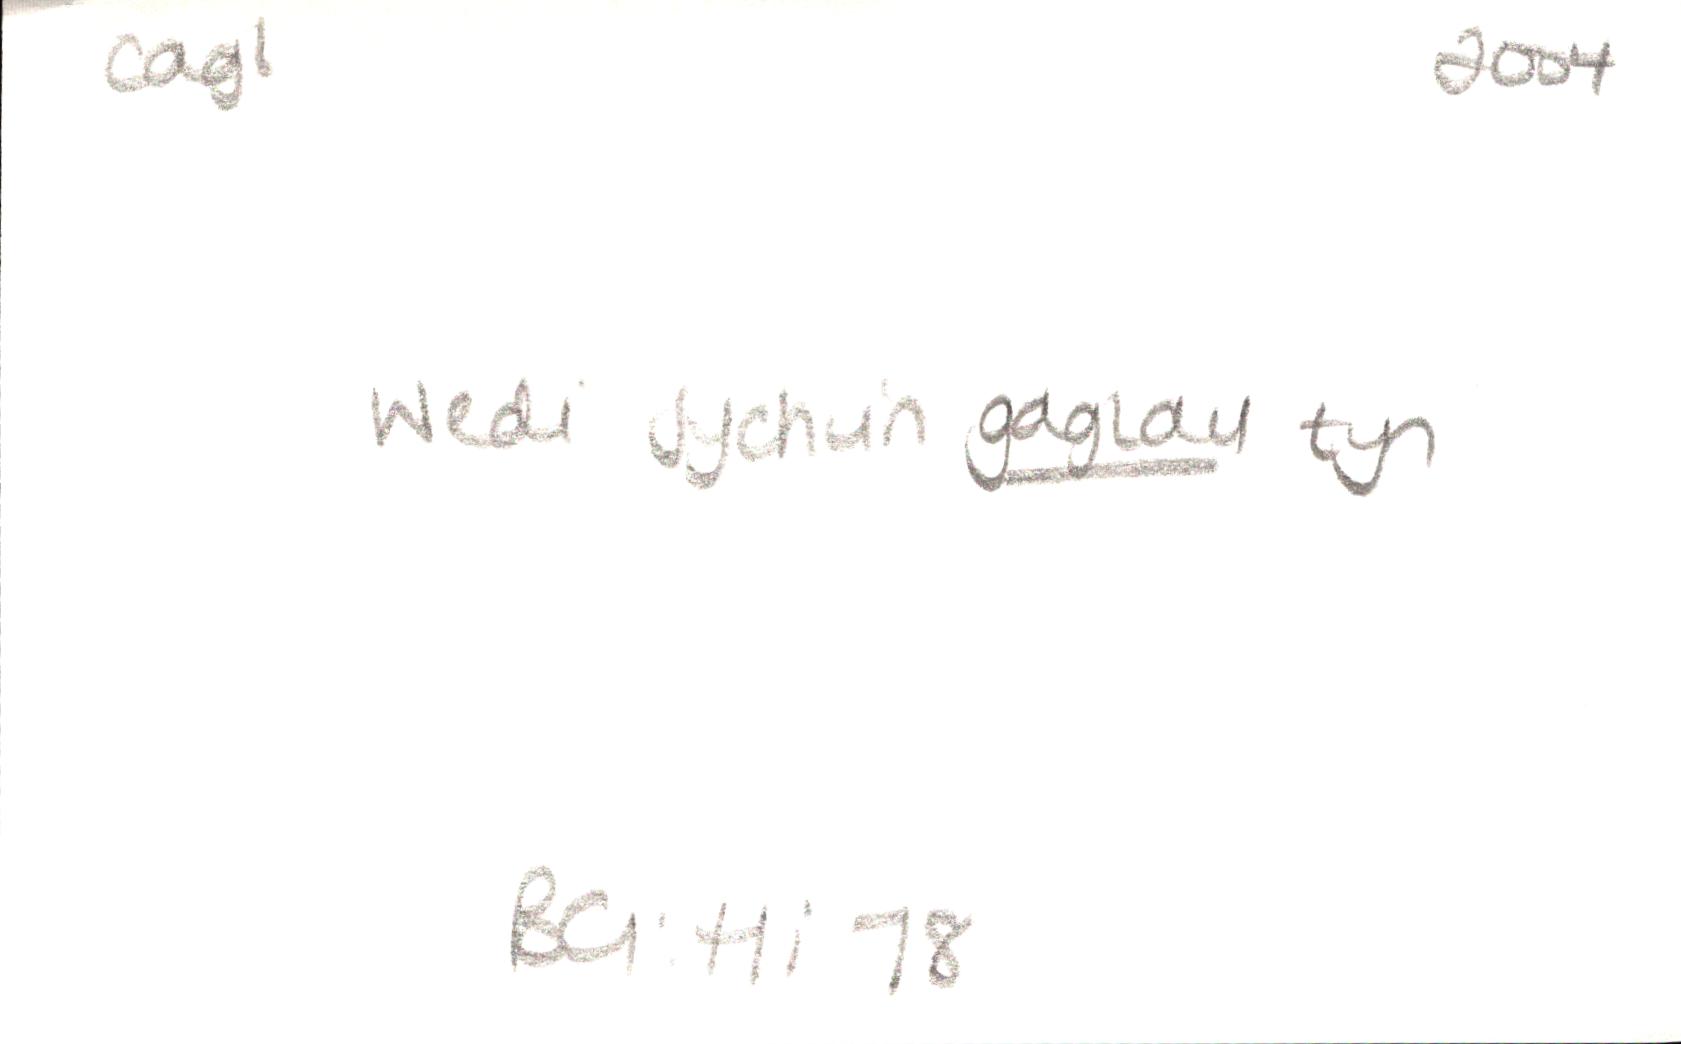 cagl 2004
Wedi sychu'n gaglau tyn
BG: Hi 78